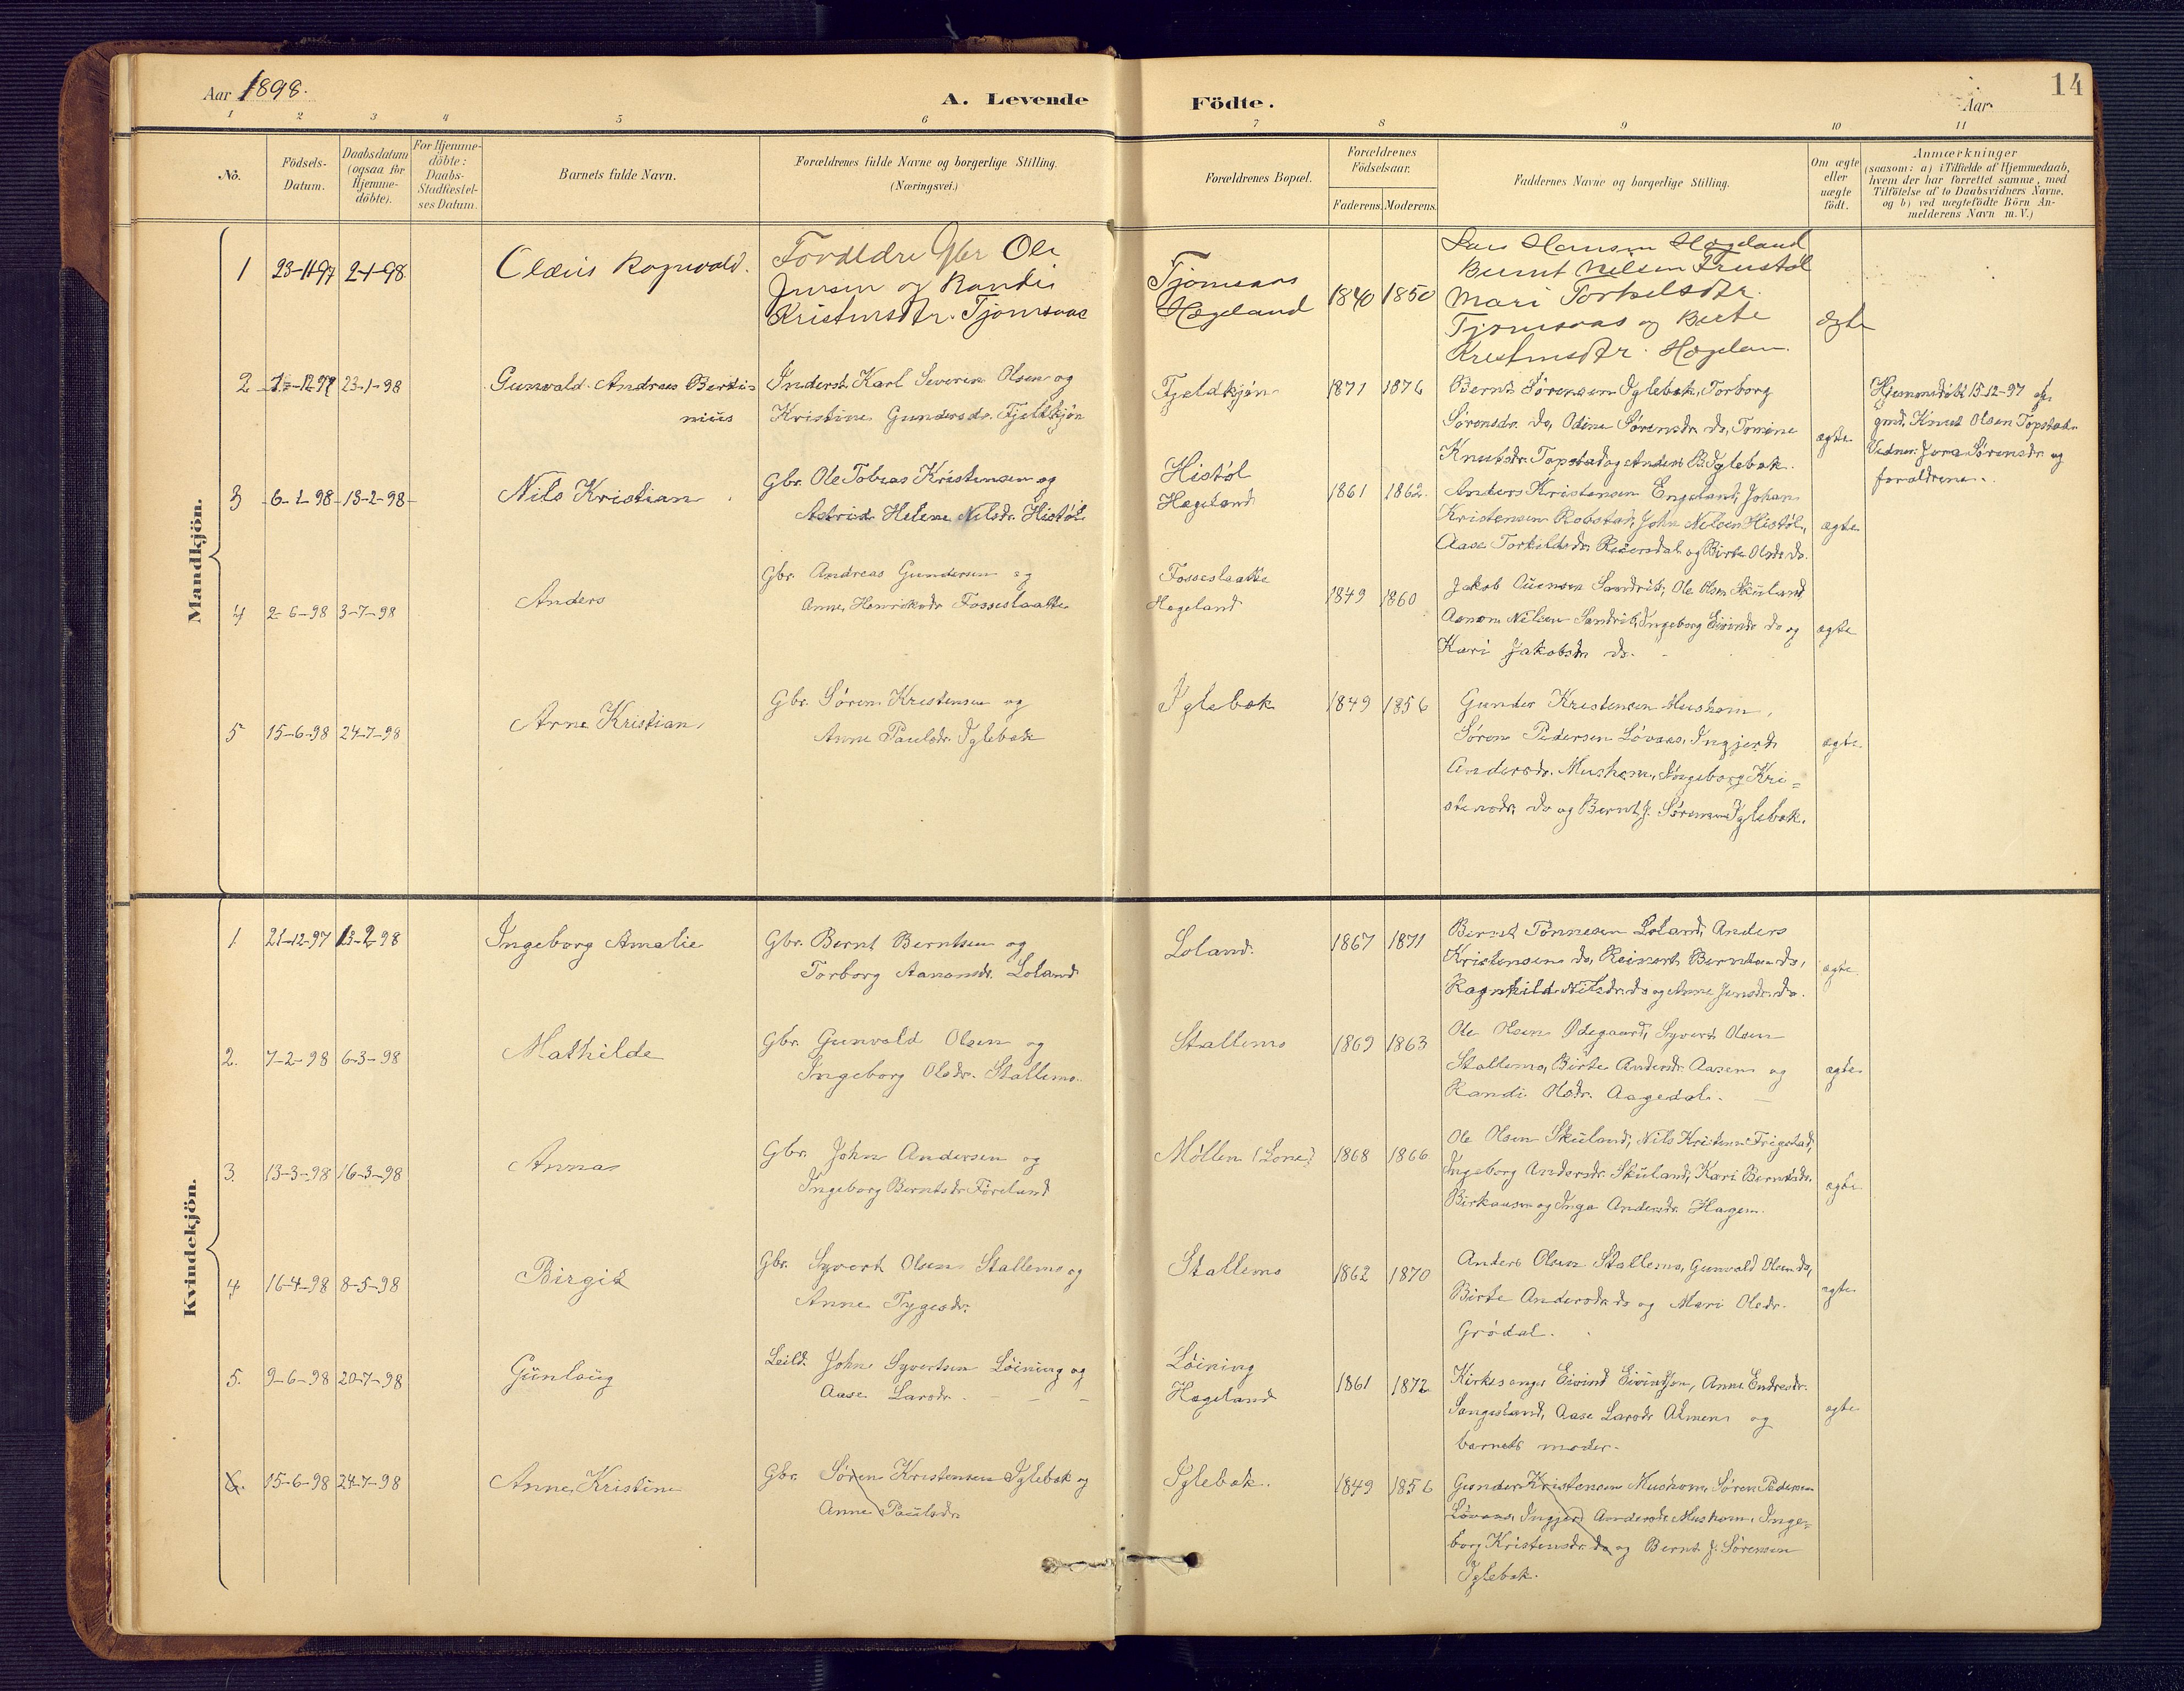 Aar 1898.
A. Levende Födte.
Aar
14
1 2 3 4 5 6 7 8 9 10 11
No.
Födsels-Datum.
Daabsdatum (ogsaa for Hjemme-döbte).
For Hjemme-döbte: Daabs-Stadfæstel-ses Datum.
Barnets fulde Navn.
Forældrenes fulde Navne og borgerlige Stilling.
(Næringsvei.)
Forældrenes Bopæl.
Forældrenes Födselsaar.
Faderens. Moderens.
Faddernes Navne og borgerlige Stilling.
Om ægte eller uægte födt.
Anmærkninger
(saasom: a) i Tilfælde af Hjemmedaab,
hvem der har forrettet samme, med
Tilföielse af to Daabsvidners Navne,
og b) ved uægtefödte Börn An-
melderens Navn m. V.)
Mandkjön.
1 23-11-97 2-1-98
Olæus Ragnvald.
Forældre Gbr Ole
Jensen og Randi
Kristensdtr. Tjomsaas
Tjomsaas
Hægeland
1840 1850
Lars Hansen Hægeland
Bernt Nilsen
Mari Torkelsdtr.
Tjomsaas og Berte
Kristensdtr.
ægte
2 23-1-98
Gunvald Andreas Bertinius
Inderst Karl Severin Olsen og
Kristine Gundersdr. Fjeldkjøn
Fjeldkjøn
1871 1876
Bernt Sørensen Iglebæk, Torborg
Sørensdr. do, Odine Sørensdr. do, Tomine
Knutsdr. Topstad og Anders B. Iglebæk.
ægte
Hjemmedøbt 15-12-97 af
gmd. Knut Olsen Topstad
Vidner: Jora Sørensdr. og
forældrene.
3 6-1-98 13-2-98
Nils Kristian
Gbr. Ole Tobias Kristensen og
Astrid Helene Nilsdr. Histøl
Histøl
Hægeland
1861 1862.
Anders Kristensen Engeland, Johan
Kristensen Robstad, John Nilsen Histøl,
Aase Torkildsdr. og Birte Olsdr. do.
ægte
4 2-6-98 3-7-98
Anders
Gbr. Andreas Gundersen og
Anne Henriksdr. Fosseslaatte
Fosseslaatte
Hægeland
1849 1860
Jakob Sandrib, Ole Olsen Skuland,
Aanon Nilsen Sandrib, Ingeborg do og
Kari Jakobsdr. do.
ægte
5 15-6-98 24-7-98
Arne Kristian
Gbr. Søren Kristensen og
Anne Paulsdr. Iglebæk
Iglebæk
1849 1856
Gunder Kristensen Mushom,
Søren Pedersen Løvaas, Ingjerd
Andersdr. Mushom, Ingeborg Kri=
stensdr. do og Bernt J. Sørensen Iglebæk.
ægte.
Kvindekjön.
1 21-12-97 13-2-98
Ingeborg Amalie
Gbr. Bernt Berntsen og
Torborg Aanonsdr. Loland
Loland.
1867 1871
Bernt Tønnesen Loland, Anders
Kristensen do, Reinert Berntsen do,
Ragnhild Nilsdr. do og Anne Jensdr. do.
ægte.
2. 7-2-98 6-3-98
Mathilde
Gbr. Gunvald Olsen og
Ingeborg Olsdr. Stallemo
Stallemo
1869 1863
Ole Olsen Ødegaard, Syvert Olsen
Stallemo, Birte Andersdr. Aasen og
Randi Olsdr. Aagedal.
ægte.
3. 13-3-98 16-3-98
Annas
Gbr. John Andersen og
Ingeborg Berntsdr. Føreland
Møllen (Lone)
1868 1866
Ole Olsen Skuland, Nils Kristensen Frigstad,
Ingeborg Andersdr. Skuland, Kari Berntsdr.
og Inga Andersdr. Hagen.
ægte
4 16-4-98 8-5-98
Birgit
Gbr. Syvert Olsen Stallemo og
Anne Tygesdr.
Stallemo
1862 1870
Anders Olsen Stallemo, Gunvald Olsen do,
Birte Andersdr. do og Mari Olsdr.
Grødal.
ægte
5. 9-6-98 20-7-98
Gunlaug
Leild. John Syvertsen Løining og
Aase Larsdr.
Løining
Hægeland
1861 1872
Kirkesanger Eivind Eivindsen, Anne Endresdr.
Sangesland, Aase Larsdr. og
barnets moder.
ægte
6. 15-6-98 24-7-98
Anne Kristine
Gbr. Søren Kristensen Iglebæk og
Anne Paulsdr.
Iglebæk.
1849 1856
Gunder Kristensen Mushom, Søren Pedersen
Løvaas, Ingjerd Andersdr. Mushom, Inge=
borg Kristensdr. do og Bernt J. Sørensen
Iglebæk.